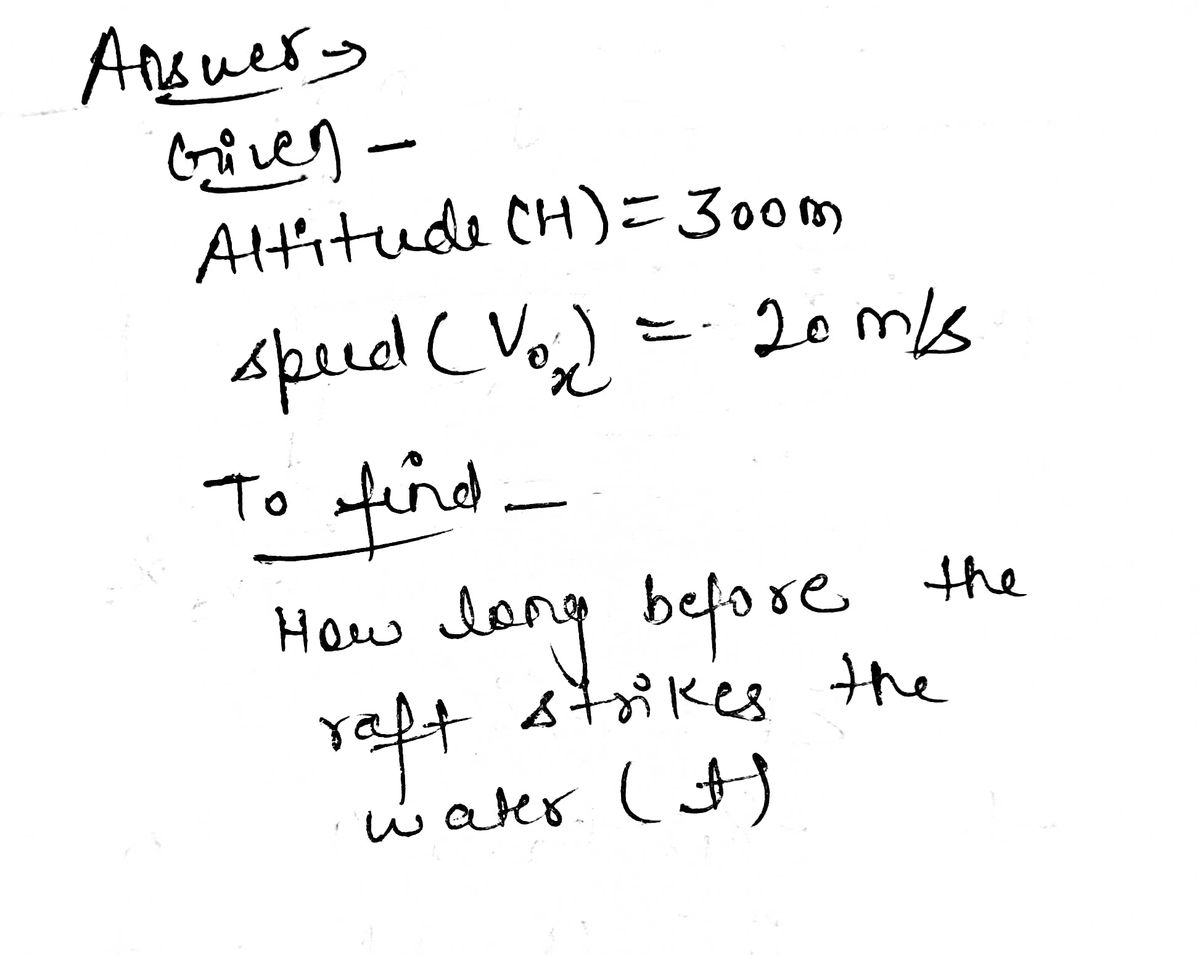 Answer→
Given -
Altitude (H) = 300m
speed (Vox) = 20 m/s
To find -
How long before the
raft strikes the
water (t)